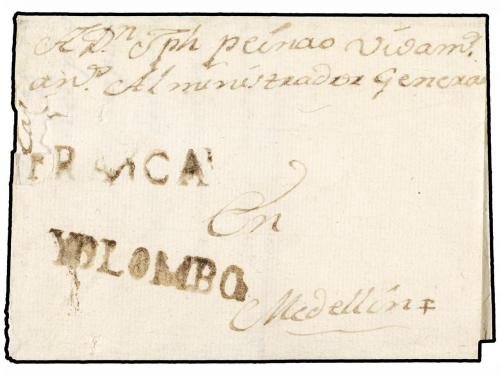 A Dn Jph peinao vivams.
ano. Alministrador Genera
FRANCA
En
YOLOMBO
Medellin